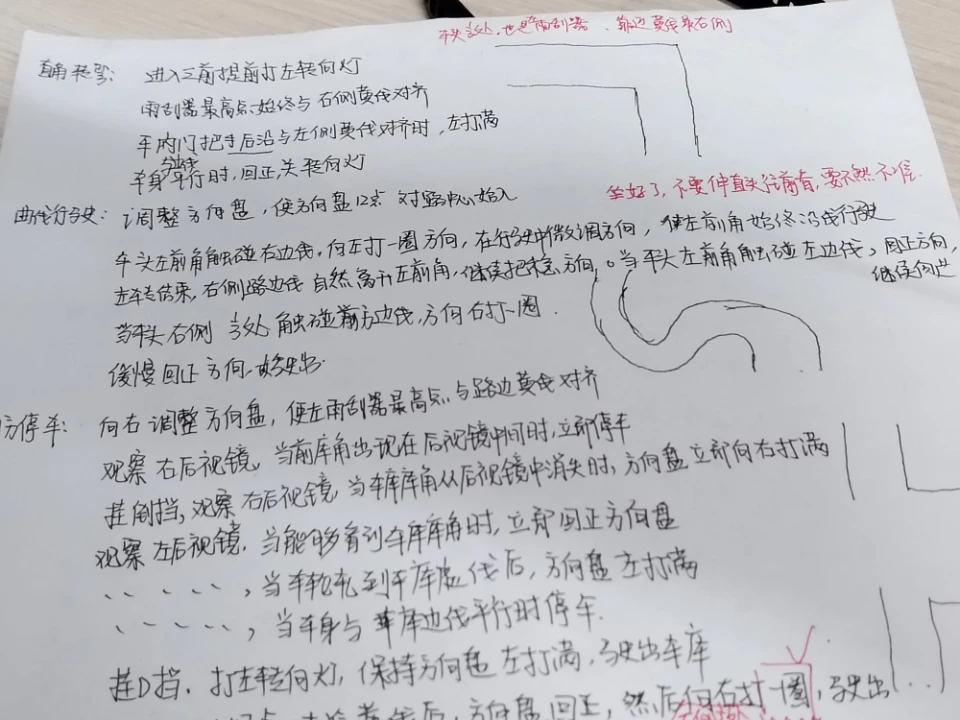 夹头处,也是雨刮器、靠边黄线最右侧
直角转弯: 进入之前提前打左转向灯
雨刮器最高点始终与右侧黄线对齐
车内门把手后沿与左侧黄线对齐时,左打满
车身与边线平行时,回正,关转向灯
坐好了,不要伸直头往前看,要不然不准.
曲线行驶: 调整方向盘,使方向盘12点对路中心始入
车头左前角触碰右边线,向左打一圈方向,在行驶中微调方向,使左前角始终沿线行驶
左转结束,右侧路边线自然离开左前角,继续把稳方向。当车头左前角触碰左边线,回正方向,
继续向
当车头右侧 处触碰前方边线,方向右打一圈.
缓慢回正方向,驶出.
方停车: 向右调整方向盘,使左雨刮器最高点与路边黄线对齐
观察右后视镜,当前库角出现在后视镜中间时,立即停车
挂倒挡,观察右后视镜,当车库库角从后视镜中消失时,方向盘立即向右打满
观察左后视镜,当能够看到车库库角时,立即回正方向盘
、、、、、,当车轮轧到车库底线后,方向盘左打满
、、、、、,当车身与车库边线平行时停车.
挂D挡.打左转向灯,保持方向盘左打满,驶出车库
黄线后,方向盘回正,然后向右打一圈,驶出